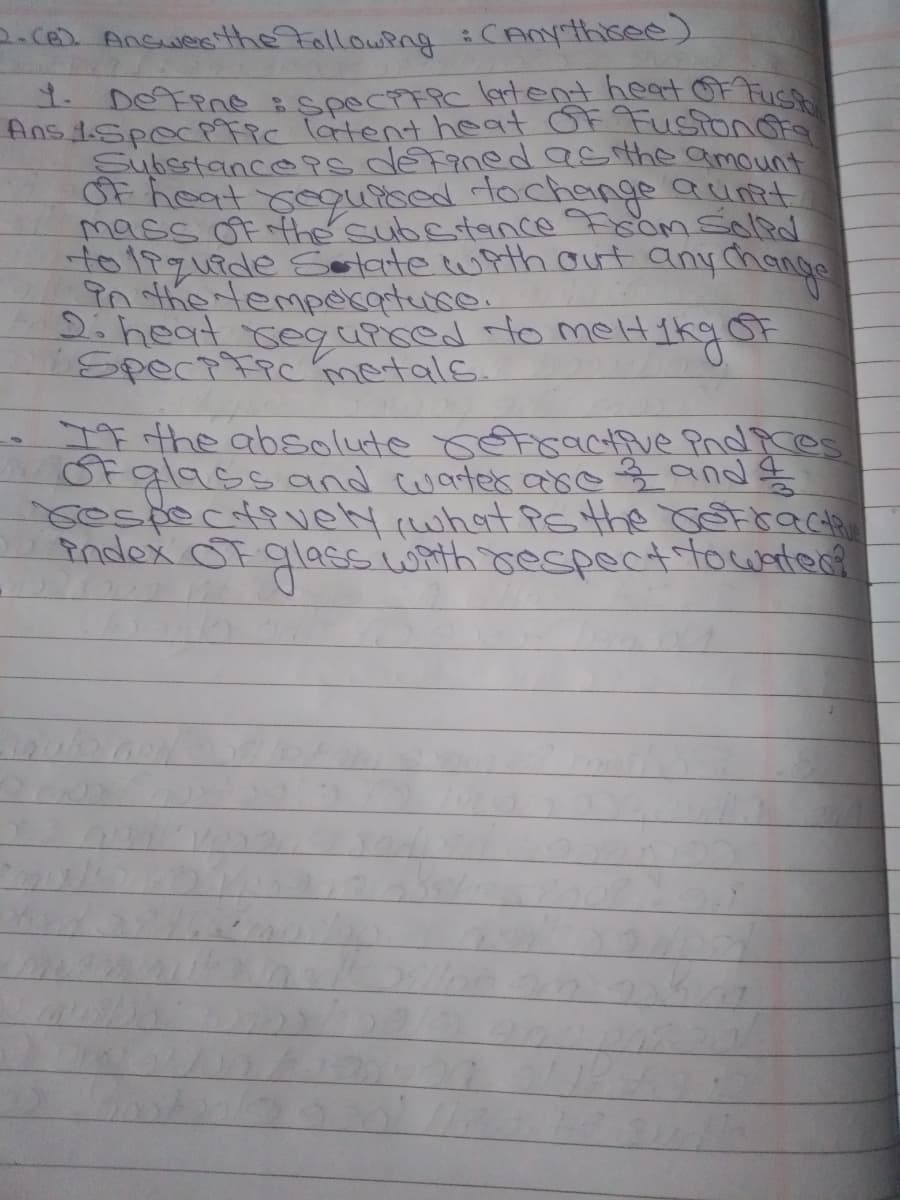 2.(B). Answer the Following : (Any three)
1. Define : specific latent heat of Fusion
Ans 1. Specific latent heat of Fusion of a
Substance is defined as the amount
of heat required to change a unit
mass of the substance from solid
to liquide State with out any change
in the temperature.
2. heat required to melt 1kg of
Specific metals.
If the absolute refractive indices
of glass and water are 3/2 and 4/3
respectively, what is the refractive
index of glass with respect to water?